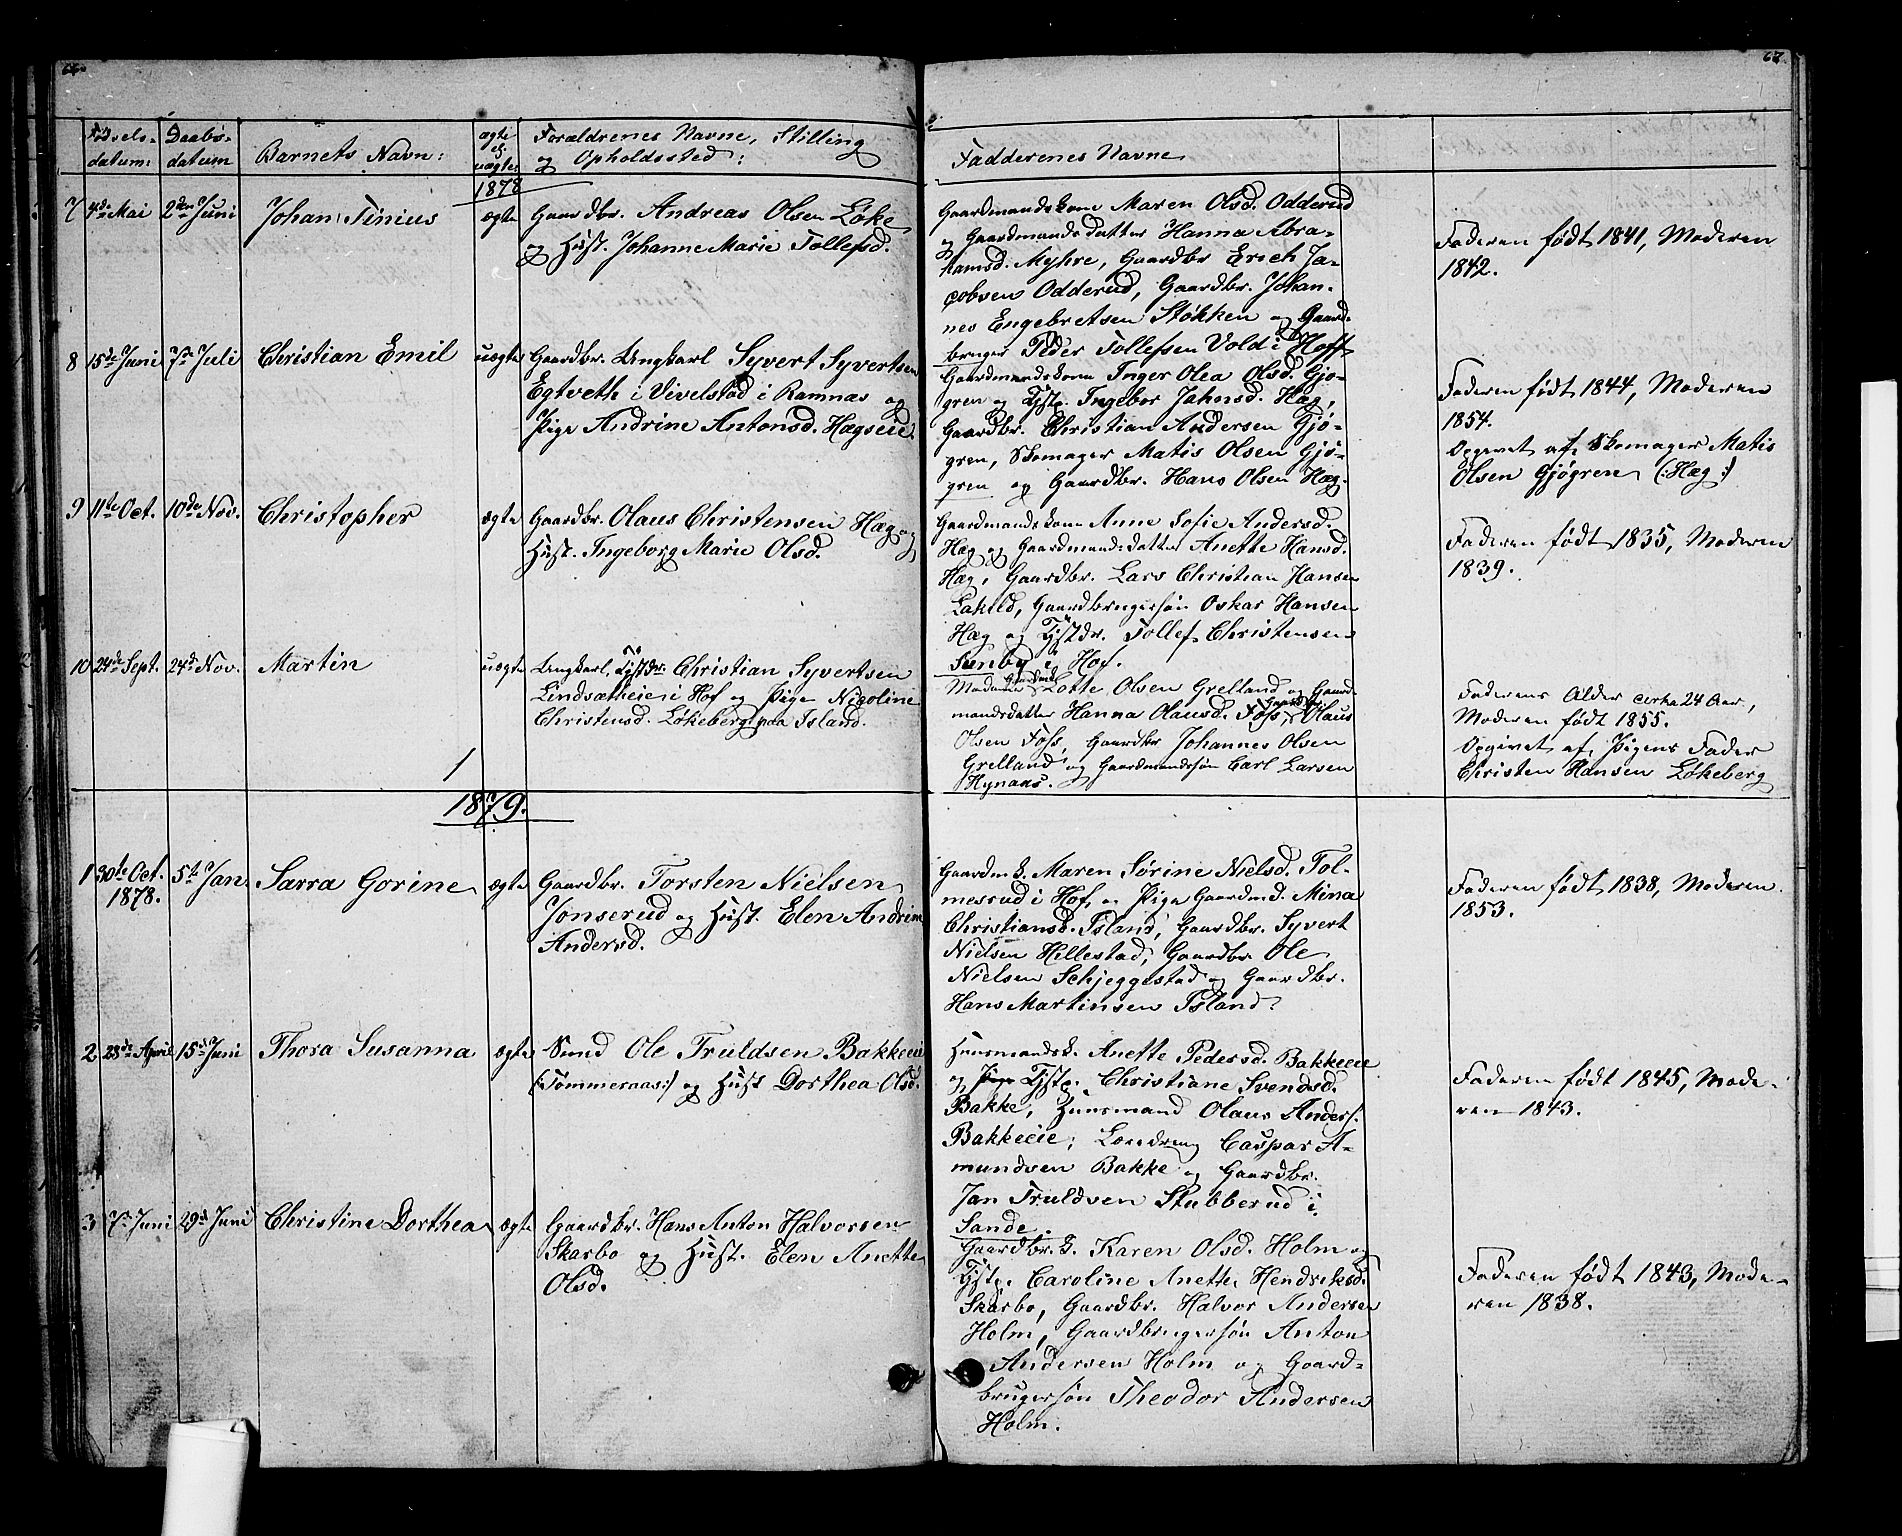 66.
67.
Fødsels-
datum:
Daabs-
datum
Barnets Navn:
ægte
el.
uægte:
Forældrenes Navne, Stilling
og Opholdssted:
Faddernes Navne
1878
7 4de Mai 2den Juni Johan Tinius ægte Gaardbr. Andreas Olsen Løke
og Hust. Johanne Marie Tollefsd.
Gaardmandskone Maren Olsd. Odderud
og Gaardmandsdatter Hanna Abra-
hamsd. Myhre, Gaardbr Erich Ja-
cobsen Odderud, Gaardbr. Johan-
nes Engebretsen Støkken og Gaard-
bruger Peder Tollefsen Vold i Hoff
Faderen født 1841, Moderen
1842.
8 15de Juni 7de Juli Christian Emil uægte Gaardbr. Ungkarl Syvert Syvertsen
Egtveth i Vivelstad i Ramnæs og
Pige Andrine Antonsd. Hægseie.
Gaardmandskone Inger Olea Olsd. Gjø-
gren og Tjstp. Ingebor Jahnsd. Hæg,
Gaardbr. Christian Andersen Gjø-
gren, Skomager Matis Olsen Gjø-
gren og Gaardbr. Hans Olsen Hæg.
Faderen født 1844, Moderen
1854.
Opgivet af Skomager Matis
Olsen Gjøgren (:Hæg:)
9 11te Oct. 10de Nov. Christopher ægte Gaardbr. Olaus Christensen Hæg og
Hust. Ingeborg Marie Olsd.
Gaardmandskone Anne Sofie Andersd.
Hæg og Gaardmandsdatter Anette Hansd.
Hæg, Gaardbr. Lars Christian Hansen
Lakild, Gaardbrugersøn Oskar Hansen
Hæg og Tjstdr. Tollef Christensen
Sunby i Hof.
Faderen født 1835, Moderen
1839.
10 24de Sept. 24de Nov. Martin uægte Ungkarl, Tjstdr. Christian Syvertsen
Lindsætheie i Hof og Pige Nicoline
Christensd. Løkeberg paa Island.
Lotte Olsen Grelland og Gaard-
mandsdatter Hanna Olausd. Foss, Gaardbr. Olaus
Olsen Foss, Gaardbr Johannes Olsen
Grelland og Gaardmandssøn Carl Larsen
Hynaas.
Faderens Alder cirka 24 Aar,
Moderen født 1855.
Opgivet af Pigens Fader
Christen Hansen Løkeberg
1879.
1 30te Oct. 5te Jan. Sarra Gorine ægte Gaardbr. Torsten Nielsen
1878.
Jonserud og Hust. Elen Andrine
Andersd.
Gaardm. k. Maren Sørine Nielsd. Tol-
mesrud i Hof, og Pige Gaardmd. Mina
Christiansd. Island, Gaardbr. Syvert
Nielsen Hillestad, Gaardbr Ole
Nielsen Schjeggestad og Gaardbr.
Hans Martinsen Island.
Faderen født 1838, Moderen
1853.
2 23de April 15de Juni Thora Susanna ægte Smed Ole Truldsen Bakkeeie
(:Tømmeraas:) og Hust Dorthea Olsd.
Huusmandsk. Anette Pedersd. Bakkeeie
og Tjstp. Christiane Svendsd.
Bakke, Huusmand Olaus Anders.
Bakkeeie, Løsdreng Caspar A-
mundsen Bakke og Gaardbr.
Jan Truldsen Stubberud i
Sande.
Faderen født 1845, Mode-
ren 1843.
3 7de Juni 29de Juni Christine Dorthea ægte Gaardbr. Hans Anton Halvorsen
Skarbo og Hust. Elen Anette
Olsd.
Gaardbr. k. Karen Olsd. Holm og
Tjstp. Caroline Anette Hendriksd.
Skarbo, Gaardbr. Halvor Andersen
Holm, Gaardbrugersøn Anton
Andersen Holm og Gaard-
brugersøn Theodor Andersen
Holm.
Faderen født 1843, Mode-
ren 1838.